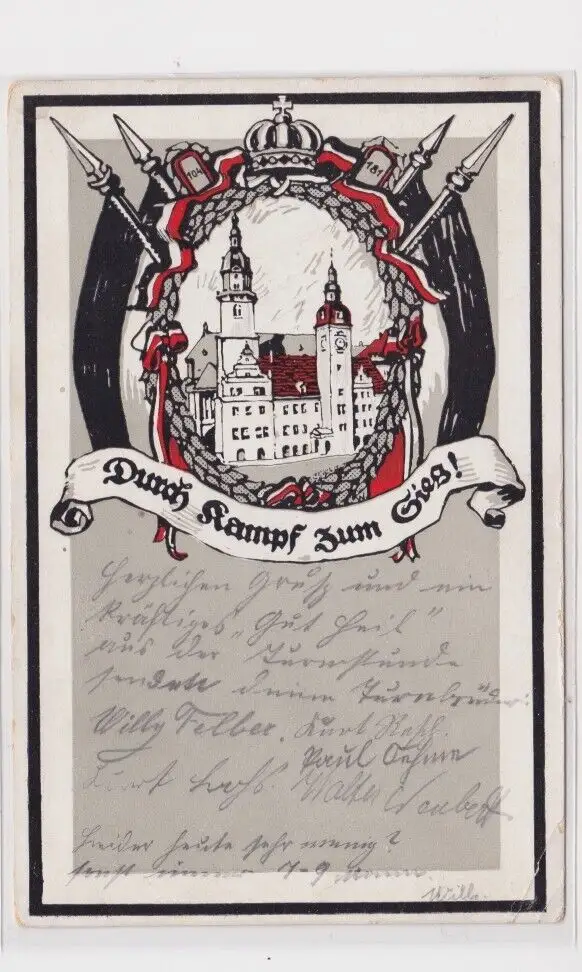 104
181
Durch Kampf zum Sieg!
Herzlichen Gruß und ein
kräftiges „Gut Heil"
aus der Turnstunde
senden deine Turnbrüder:
Willy Felber. Kurt
Paul Oehme
Kurt Walter
Leider heute sehr wenig?
sonst immer 7-9 Mann.
Willy.